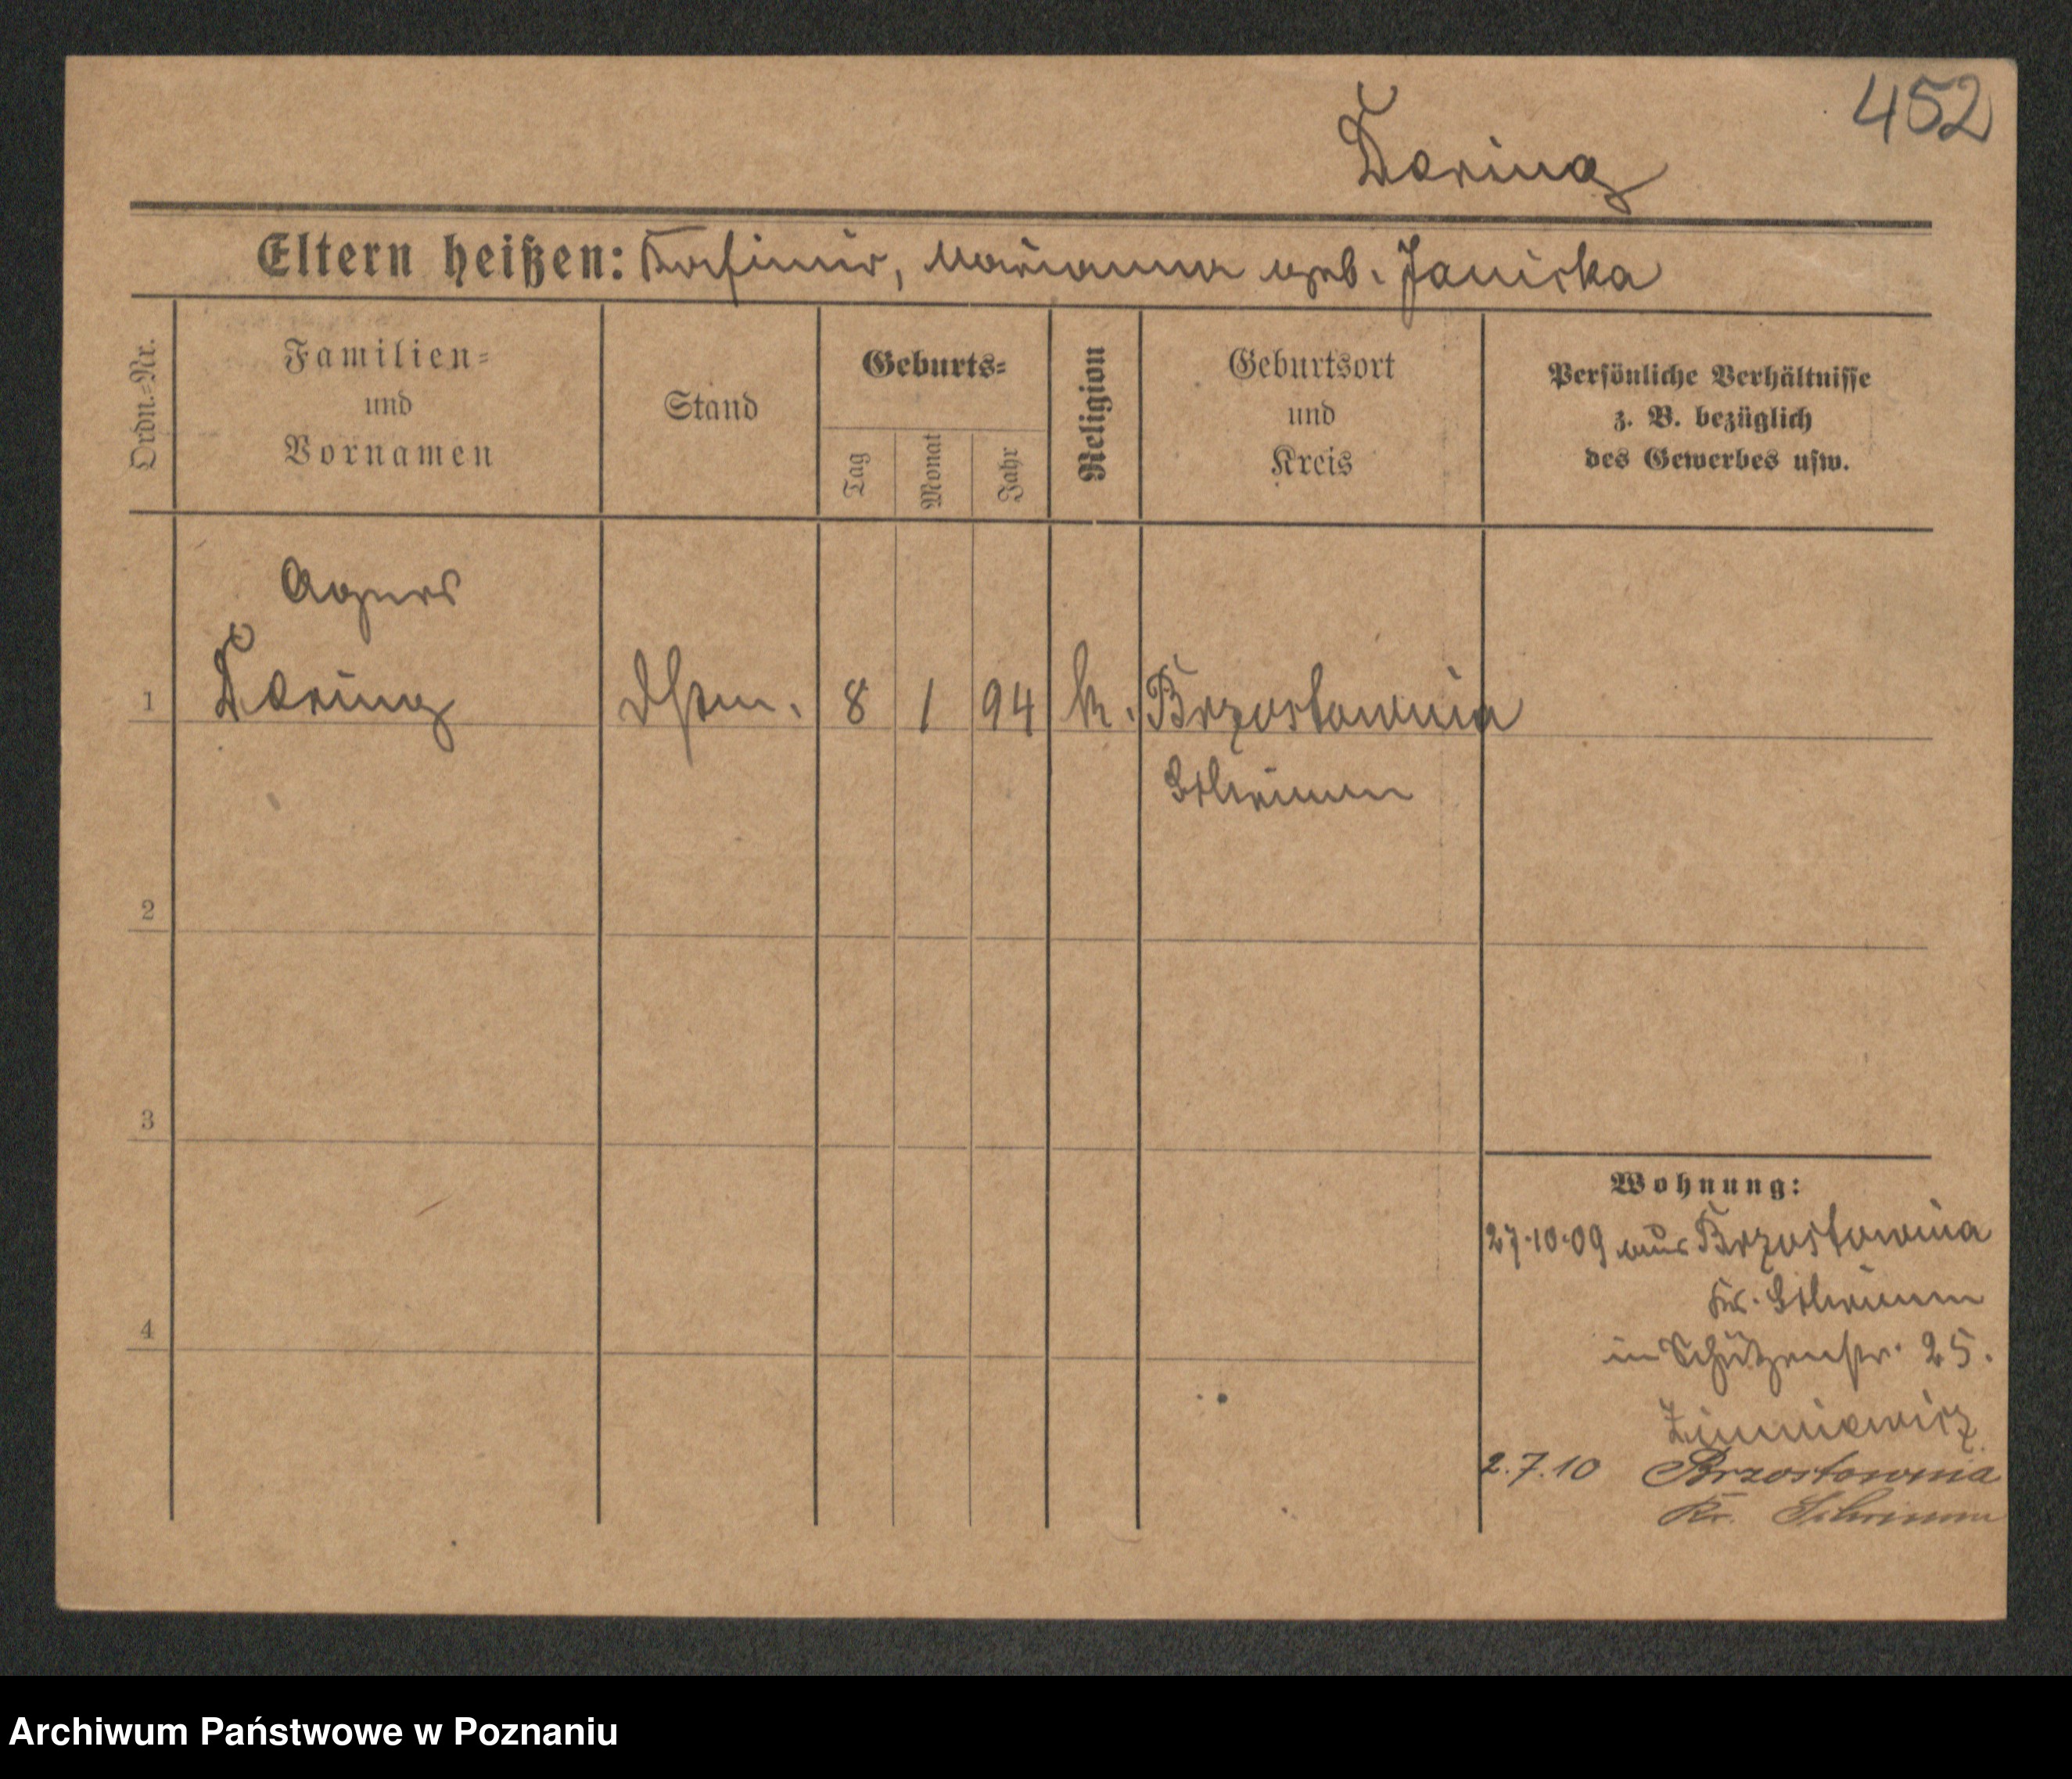 452
Eltern heißen: Kasimir, Marianna geb. Janicka
Ordn.=Nr.
Familien=
und
Vornamen
Stand
Geburts=
Tag
Monat
Jahr
Religion
Geburtsort
und
Kreis
Persönliche Verhältnisse
z. B. bezüglich
des Gewerbes usw.
Agnes
1 8 1 94 k. Brzostownia
Schrimm
2
3
4
Wohnung:
27.10.09 aus Brzostownia
Kr. Schrimm
in Schützenstr. 25.
Zimniewicz
2.7.10 Brzostownia
Kr. Schrimm
Archiwum Państwowe w Poznaniu